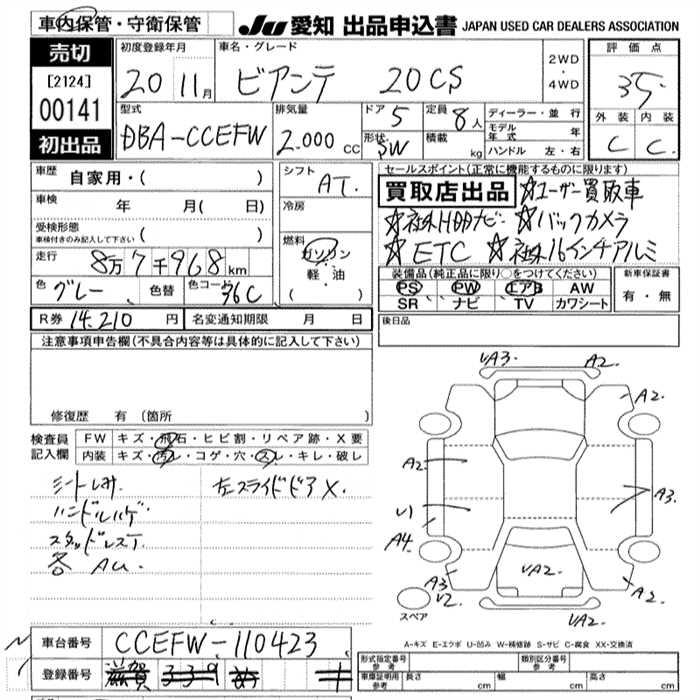 車内保管・守衛保管
JU 愛知 出品申込書 JAPAN USED CAR DEALERS ASSOCIATION
売切
[2124]
00141
初出品
初度登録年月
20 11月
車名・グレード
ビアンテ 20CS
2WD
・
4WD
評価点
3.5
外装 内装
C C
型式
DBA-CCEFW
排気量
2.000 CC
ドア 5
形状 SW
定員 8人
積載 kg
ディーラー・並行
モデル年式 年
ハンドル 左・右
車歴 自家用・( )
車検 年 月( 日)
受検形態
車検付きのみ記入して下さい ( )
走行 8万7千968km
色 グレー 色替 色コード 36C
シフト AT.
冷房
燃料
ガソリン
・
軽・油
( )
セールスポイント(正常に機能するものに限ります)
買取店出品 ☆ユーザー買取車
☆社外HDDナビ ☆バックカメラ
☆ETC ☆社外16インチアルミ
装備品(純正品に限り○をつけてください)
PS PW エアB AW
SR ナビ TV カワシート
新車保証書
有・無
R券 14.210 円 名変通知期限 月 日
後日品
注意事項申告欄(不具合内容等は具体的に記入して下さい)
修復歴 有(箇所 )
検査員記入欄
FW キズ・飛石・ヒビ割・リペア跡・X要
内装 キズ・汚レ・コゲ・穴・スレ・キレ・破レ
シートしみ 左スライドドアX.
ハンドルハゲ
スタッドレスT.
各 AU.
VA3. A2.
A2.
A2
U1
A3.
A4
A3
U2.
VA2.
A2.
VA2.
スペア
A-キズ E-エクボ U-凹み W-補修跡 S-サビ C-腐食 XX-交換済
車台番号 CCEFW-110423
登録番号 滋賀 339
形式指定番号 参考
類別区分番号 参考
車庫証明用 参考 長さ cm 幅 cm 高さ cm